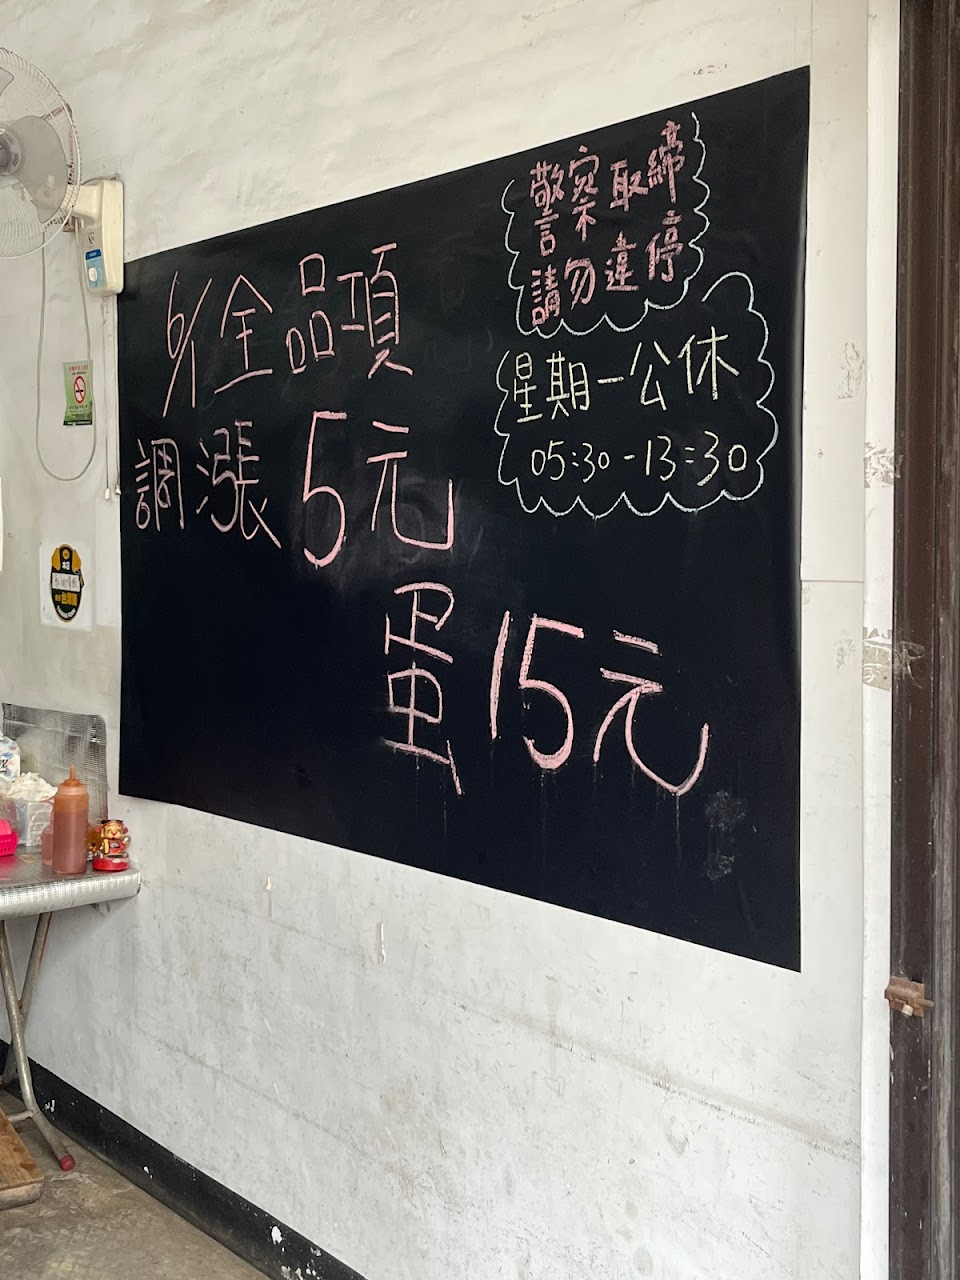 6/1 全品項
調漲 5元
蛋 15元
警察取締
請勿違停
星期一公休
05:30-13:30